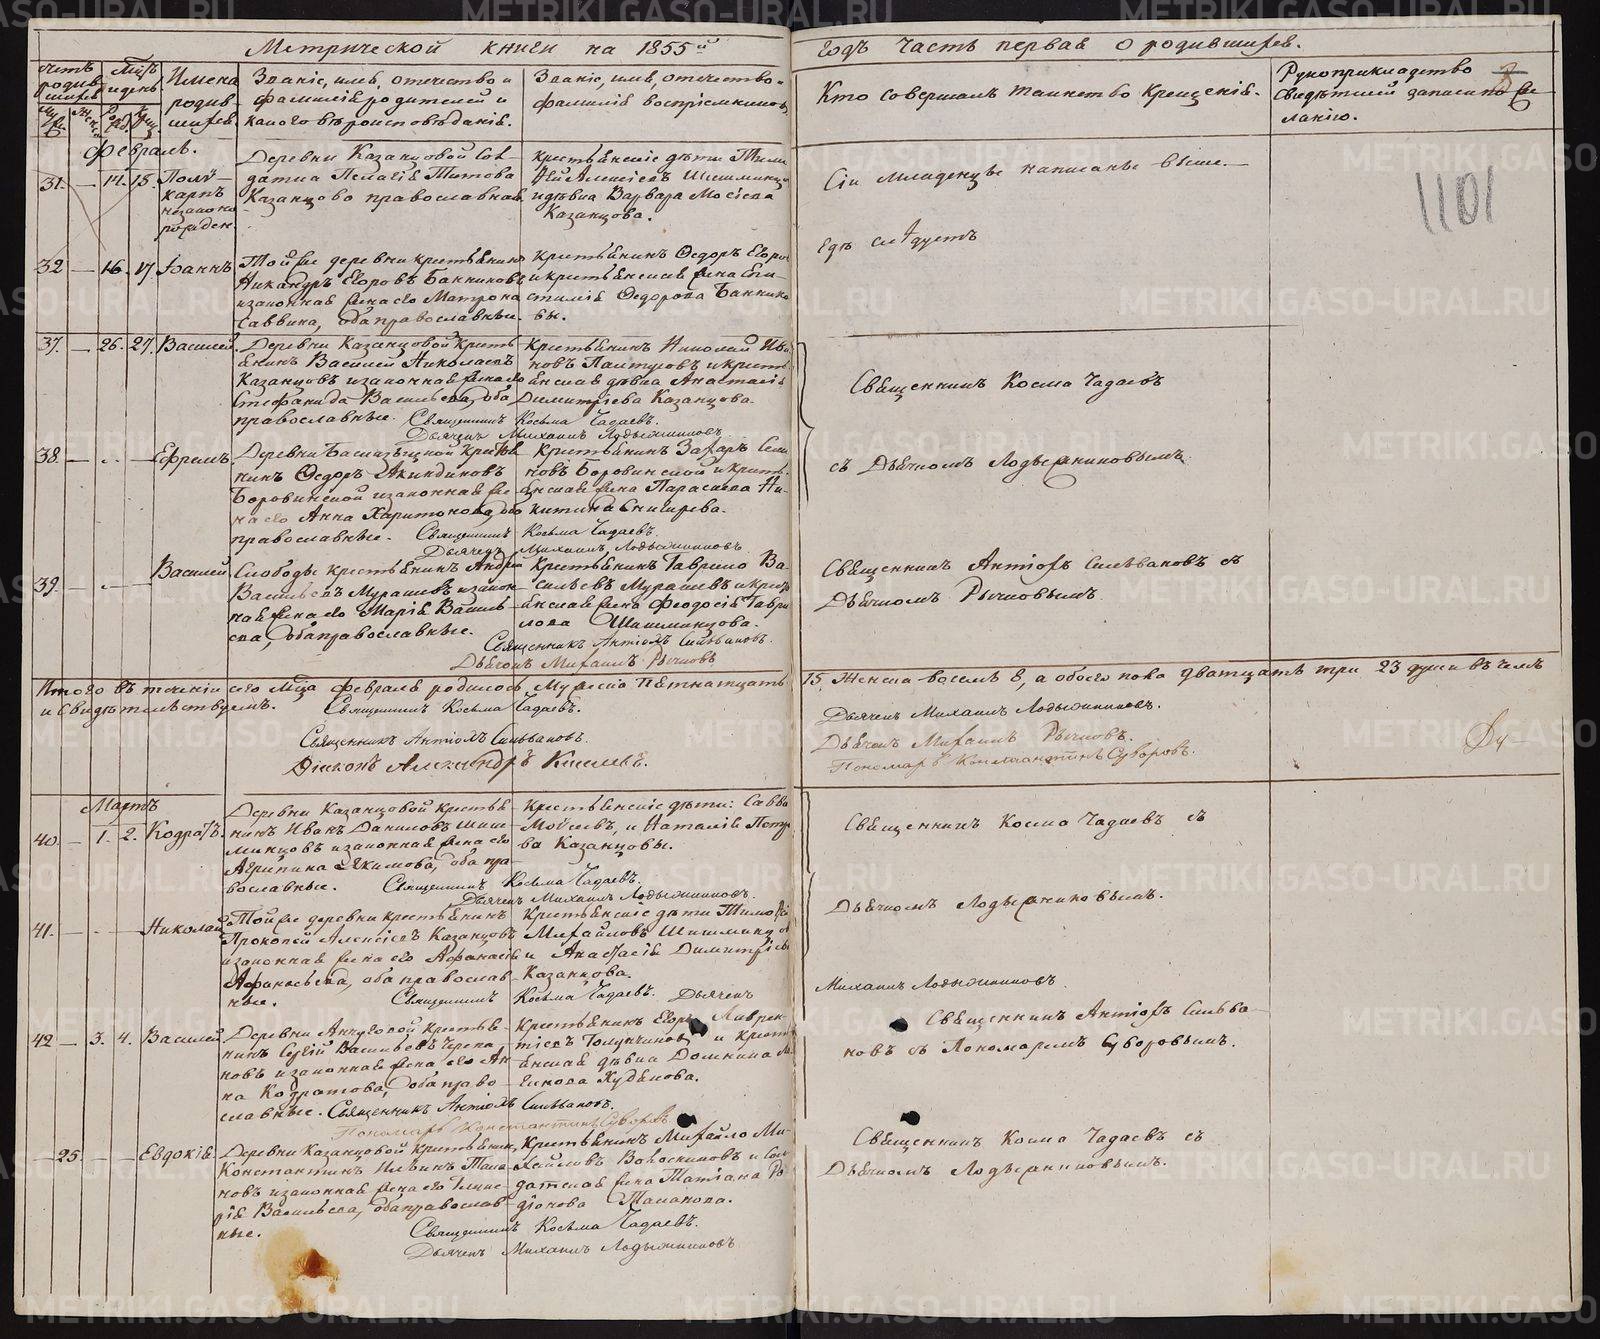 Метрической книги на 1855й годъ часть первая о родившихся.
счетъ родившихся
Мѣсяцъ и день
Имена родившихся.
Званіе, имя, отчество и фамилія родителей и какого вѣроисповѣданія.
Званіе, имя, отчество и фамилія воспріемниковъ
Кто совершалъ таинство крещенія.
Рукоприкладство свидѣтелей записи по желанію.
1101
Февраль.
31. — 14. 15. Поликарпъ незаконорожден.
Деревни Казанцовой солдатка Пелагія Титова
Казанцова православная.
Крестьянскіе дѣти Тимофей Алексѣевъ Шишминцовъ
и дѣвка Варвара Мосіева
Казанцова.
Сіи младенцы написаны выше.—
гдѣ слѣдуетъ
32 — 16. 17. Іоаннъ
Той же деревни крестьянинъ
Никандръ Егоровъ Банниковъ
и законная жена его Матрона
Саввина, оба православные.
Крестьянинъ Ѳедоръ Егоровъ
и крестьянская жена Епистимія Ѳедорова Банниковы.
37. — 26. 27. Василей.
Деревни Казанцовой крестьянинъ Василей Николаевъ
Казанцовъ и законная жена его
Стефанида Васильева, оба
православные.
Крестьянинъ Николай Ивановъ Пантуевъ и крестьянская дѣвка Анастасія
Димитріева Казанцова.
Священникъ Косьма Чадаевъ.
Дьячекъ Михаилъ Лодыжниковъ.
Священникъ Косма Чадаевъ
съ Дьячкомъ Лодыжниковымъ.
38. — „ — Ефремъ.
нинъ Ѳедоръ Акиндиновъ
Боровинской и законная жена его Анна Харитонова, оба
православные.
Крестьянинъ Захаръ Семеновъ Боровинской и крестьянская жена Параскева Никитина Снигирева.
Священникъ Косьма Чадаевъ.
Дьячекъ Михаилъ Лодыжниковъ
39. — „ — Василей
Слободы крестьянинъ Андрей
Васильевъ Мурашевъ и законная жена его Марія Васильева, оба православные.
Крестьянинъ Гаврило Васильевъ Мурашевъ и крестьянская жена Феодосія Гаврилова Шишминцова.
Священникъ Антіохъ Сильвановъ.
Дьячекъ Михаилъ Рычковъ
Священникъ Антіохъ Сильвановъ съ
Дьячкомъ Рычковымъ.
Итого въ теченіи сего мца февраля родилось Мужеска пятнатцать 15, Женска восемь 8, а обоего пола дватцать три 23 души въ чемъ
и свидѣтельствуемъ.
Священникъ Косьма Чадаевъ.
Священникъ Антіохъ Сильвановъ.
Діаконъ Александръ Киселевъ.
Дьячекъ Михаилъ Лодыжниковъ.
Дьячекъ Михаилъ Рычковъ.
Пономарь Константинъ Суворовъ.
Мартъ
40. — 1. 2. Кодратъ.
Деревни Казанцовой крестьянинъ Иванъ Даниловъ Шишминцовъ и законная жена его
Агрипина Екимова, оба православные.
Крестьянскіе дѣти: Савва
Мосіевъ, и Наталія Петрова Казанцовы.
Священникъ Косьма Чадаевъ.
Дьячекъ Михаилъ Лодыжниковъ.
Священникъ Косма Чадаевъ съ
Дьячкомъ Лодыжниковымъ.
41. — „ — Николай
Той же деревни крестьянинъ
Прокопей Алексіевъ Казанцовъ
и законная жена его Афанасія
Афанасьева, оба православные.
Крестьянскіе дѣти Тимофей
Михайловъ Шишминцовъ
и Анастасія Димитріева
Казанцова.
Священникъ Косьма Чадаевъ. Дьячекъ
Михаилъ Лодыжниковъ.
42 — 3. 4. Василей
нинъ Сергій Васильевъ Черепановъ и законная жена его Анна Кодратова, оба православные.
Крестьянинъ Егоръ Лаврентіевъ Голунчиковъ и крестьянская дѣвка Домника
Худякова.
Священникъ Антіохъ Сильвановъ.
Пономарь Константинъ Суворовъ.
Священникъ Антіохъ Сильвановъ съ Пономаремъ Суворовымъ.
— 25. — Евдокія.
Деревни Казанцовой крестьянинъ
Константинъ Ильинъ Талановъ и законная жена его
Васильева, оба православные.
Крестьянинъ Михайло Михайловъ Волосниковъ и солдатская жена Татіана Родіонова Таланова.
Священникъ Косьма Чадаевъ.
Дьячекъ Михаилъ Лодыжниковъ
Священникъ Косма Чадаевъ съ
Дьячкомъ Лодыжниковымъ.
METRIKI.GASO-URAL.RU